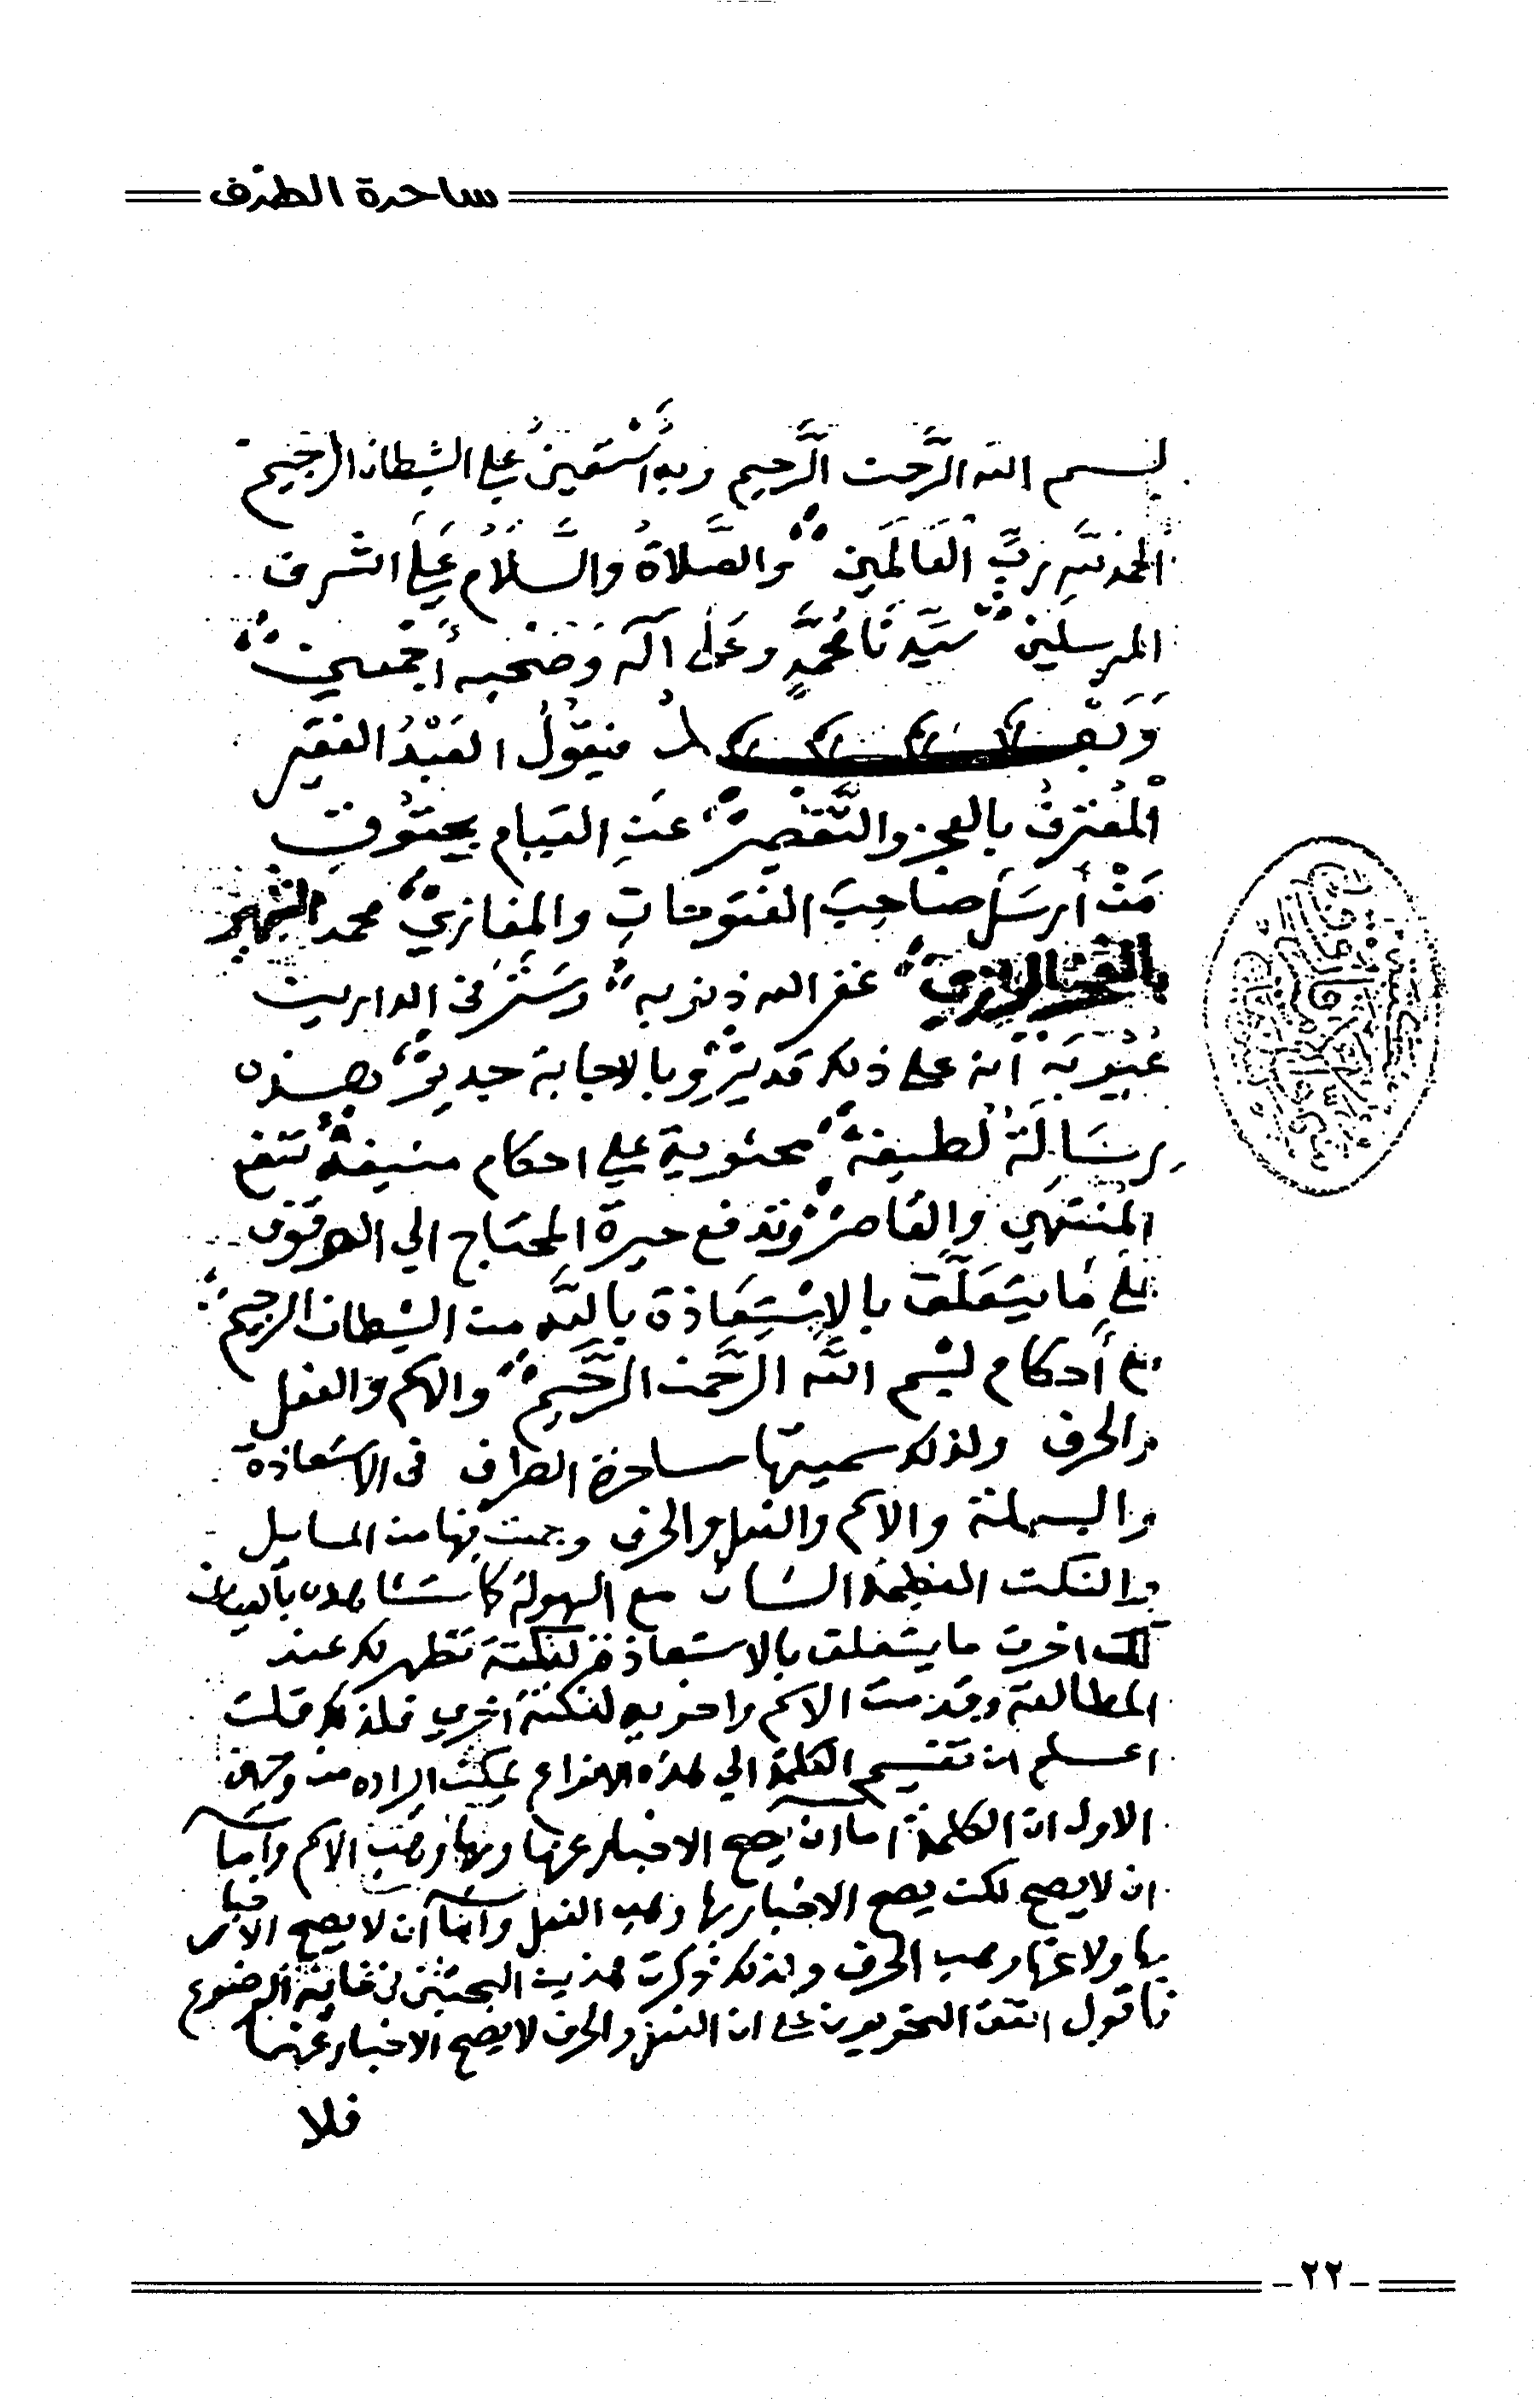 ساحرة الطرف
بسم الله الرَّحمن الرَّحيم وبه أَسْتَعينُ علي الشيطان الرجيم
الحمد للهِ ربِّ العَالَمين والصَّلاةُ والسَّلَامُ عَلَي اشرف
المرسلين سَيّدنَا مُحمَّدٍ وعَلى آله وَصَحْبه أجْمعين
وَبَعْد فيقُولُ العَبْدُ الفقير
المُعْترفُ بالعجز والتَّقْصير عَنِ القيام بحقُوق
مَنْ أرسَلَ صاحِبَ الفتوحاتِ والمغازي محمد الشهير
بالفخر الرازي غفر الله ذنوبه وسَتَر في الدارين
عُيُوبَه انه على ذلك قديرٌ وبالاجابة جدير هذه
رسَالَة لطيفة محتوية علي احكام منيفة تنفع
المنتهي والقاصر وتدفع حيرة المحتاج الي الوقوف
عَلي مَا يتَعَلّق بالاِسْتِعَاذة باللَّه من الشيطان الرجيم
مع أحكام بسْم اللَّه الرَّحْمن الرَّحيم والاسم والفعل
والحرف ولذلك سميتها ساحرة الطرف في الاستعاذة
والبسملة والاسم والفعل والحرف وجمعت فيها من المسايل
والنكت العظيمة الشان مع السهولة كما ستشاهده بالعيان
لكن اخرت ما يتعلق بالاستعاذة لنكتة تظهر لك عند
المطالعة وقدمت الاسم واخويه لنكتة اخري فلذلك قلت
اعلم ان تقسيم الكلمة الي هذه الانواع يمكن ايراده من وجهين
الاول ان الكلمة اما ان يصح الاخبار عنها وبها وهي الاسم واما
ان لا يصح لكن يصح الاخبار بها وهي الفعل واما ان لا يصح الاخبار
بها ولا عنها وهي الحرف ولذلك ذكرت هذين البحثين في غاية الوضوح
فاقول اتفق النحويون على ان الفعل والحرف لا يصح الاخبار عنهما
فلا
-٢٢-